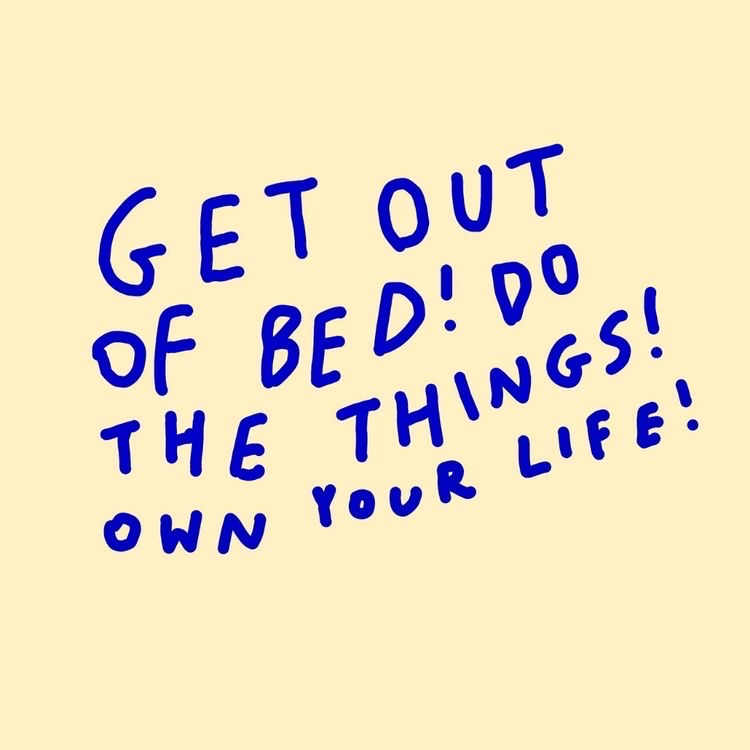 GET OUT
OF BED! DO
THE THINGS!
OWN YOUR LIFE!